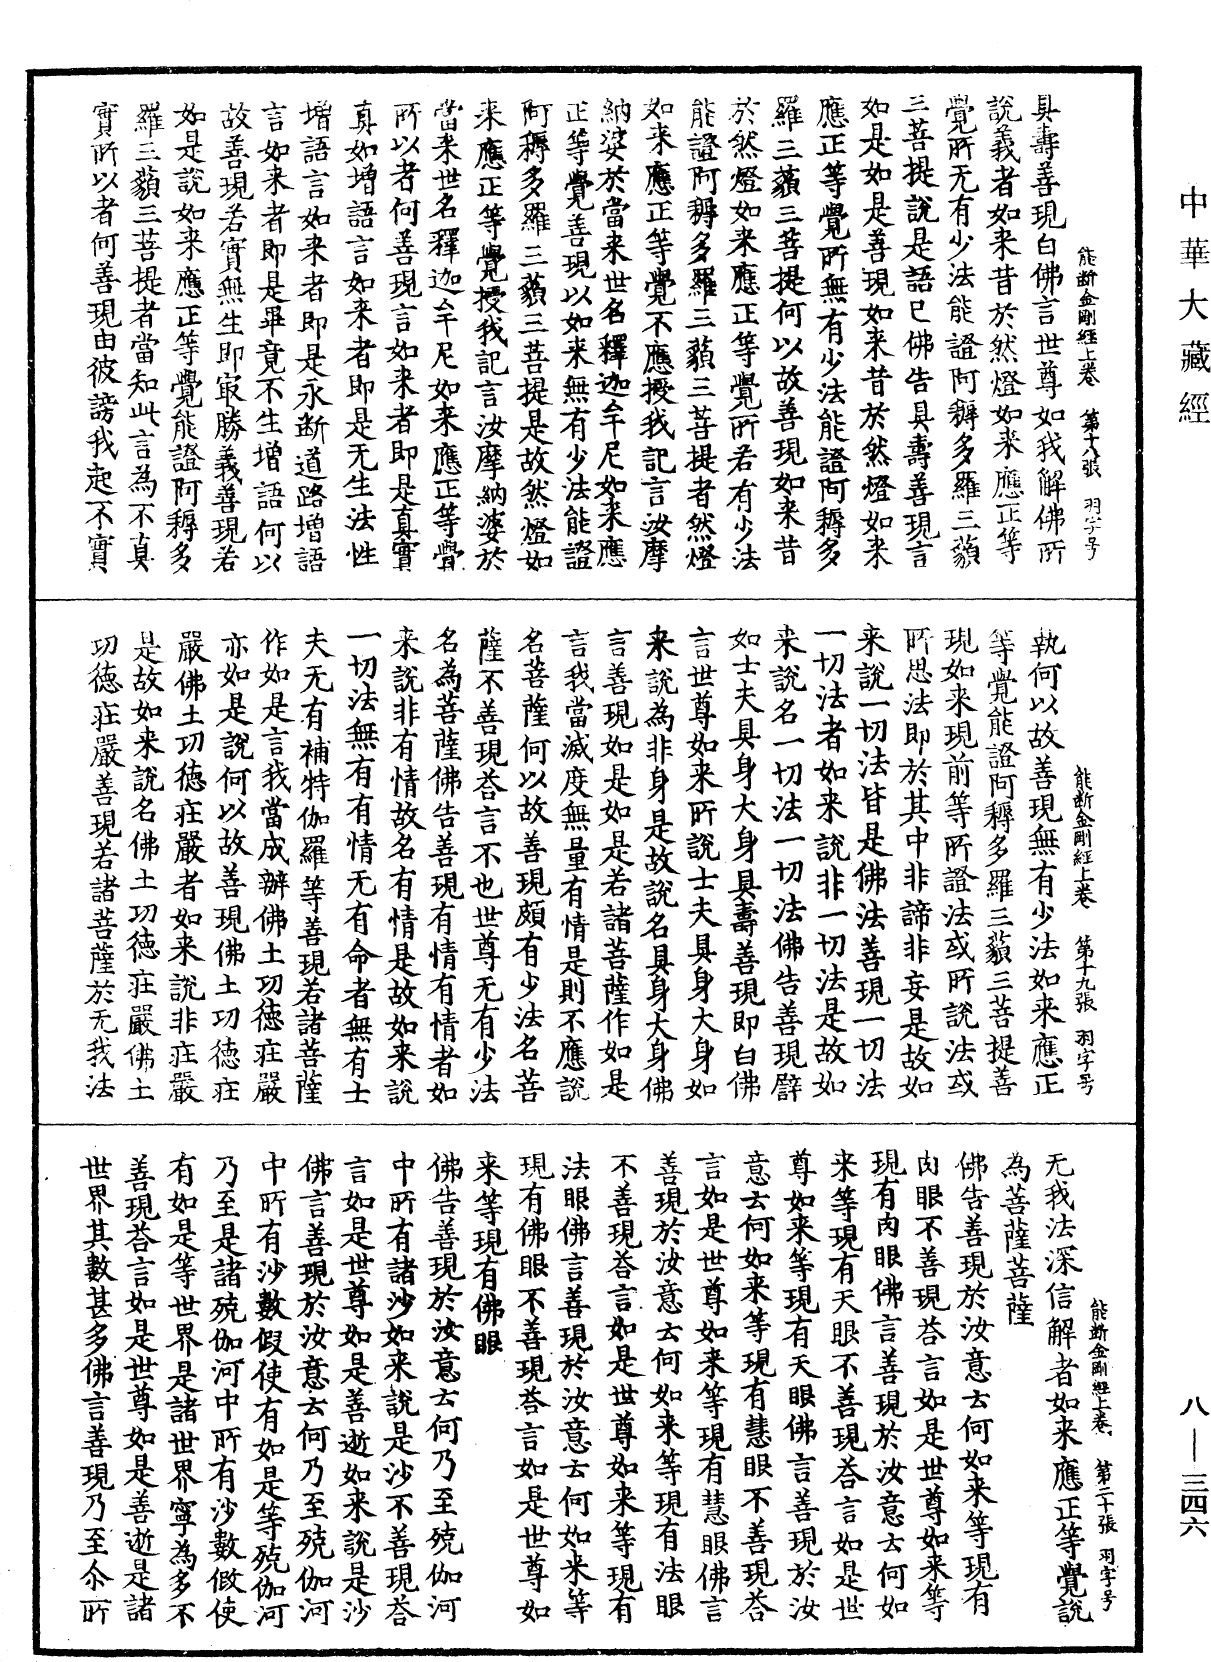 中華大藏經
八—三四六
能斷金剛經上卷 第十八張 羽字号
具壽善現白佛言世尊如我解佛所
說義者如来昔於然燈如来應正等
覺所无有少法能證阿耨多羅三藐
三菩提說是語已佛告具壽善現言
如是如是善現如来昔於然燈如来
應正等覺所無有少法能證阿耨多
羅三藐三菩提何以故善現如来昔
於然燈如来應正等覺所若有少法
能證阿耨多羅三藐三菩提者然燈
如来應正等覺不應授我記言汝摩
納婆於當来世名釋迦牟尼如来應
正等覺善現以如来無有少法能證
阿耨多羅三藐三菩提是故然燈如
来應正等覺授我記言汝摩納婆於
當来世名釋迦牟尼如来應正等覺
所以者何善現言如来者即是真實
真如增語言如来者即是无生法性
增語言如来者即是永斷道路增語
言如来者即是畢竟不生增語何以
故善現若實無生即㝡勝義善現若
如是說如来應正等覺能證阿耨多
羅三藐三菩提者當知此言為不真
實所以者何善現由彼謗我起不實
能斷金剛經上卷 第十九張 羽字号
執何以故善現無有少法如来應正
等覺能證阿耨多羅三藐三菩提善
現如来現前等所證法或所說法或
所思法即於其中非諦非妄是故如
来說一切法皆是佛法善現一切法
一切法者如来說非一切法是故如
来說名一切法一切法佛告善現譬
如士夫具身大身具壽善現即白佛
言世尊如来所說士夫具身大身如
来說為非身是故說名具身大身佛
言善現如是如是若諸菩薩作如是
言我當滅度無量有情是則不應說
名菩薩何以故善現頗有少法名菩
薩不善現荅言不也世尊无有少法
名為菩薩佛告善現有情有情者如
来說非有情故名有情是故如来說
一切法無有有情无有命者無有士
夫无有補特伽羅等善現若諸菩薩
作如是言我當成辦佛土功德莊嚴
亦如是說何以故善現佛土功德莊
嚴佛土功德莊嚴者如来說非莊嚴
是故如来說名佛土功德莊嚴佛土
功德莊嚴善現若諸菩薩於无我法
能斷金剛經上卷 第二十張 羽字号
无我法深信解者如来應正等覺說
為菩薩菩薩
佛告善現於汝意云何如来等現有
肉眼不善現荅言如是世尊如来等
現有肉眼佛言善現於汝意云何如
来等現有天眼不善現荅言如是世
尊如来等現有天眼佛言善現於汝
意云何如来等現有慧眼不善現荅
言如是世尊如来等現有慧眼佛言
善現於汝意云何如来等現有法眼
不善現荅言如是世尊如来等現有
法眼佛言善現於汝意云何如来等
現有佛眼不善現荅言如是世尊如
来等現有佛眼
佛告善現於汝意云何乃至殑伽河
中所有諸沙如来說是沙不善現荅
言如是世尊如是善逝如来說是沙
佛言善現於汝意云何乃至殑伽河
中所有沙數假使有如是等殑伽河
乃至是諸殑伽河中所有沙數假使
有如是等世界是諸世界寧為多不
善現荅言如是世尊如是善逝是諸
世界其數甚多佛言善現乃至尒所